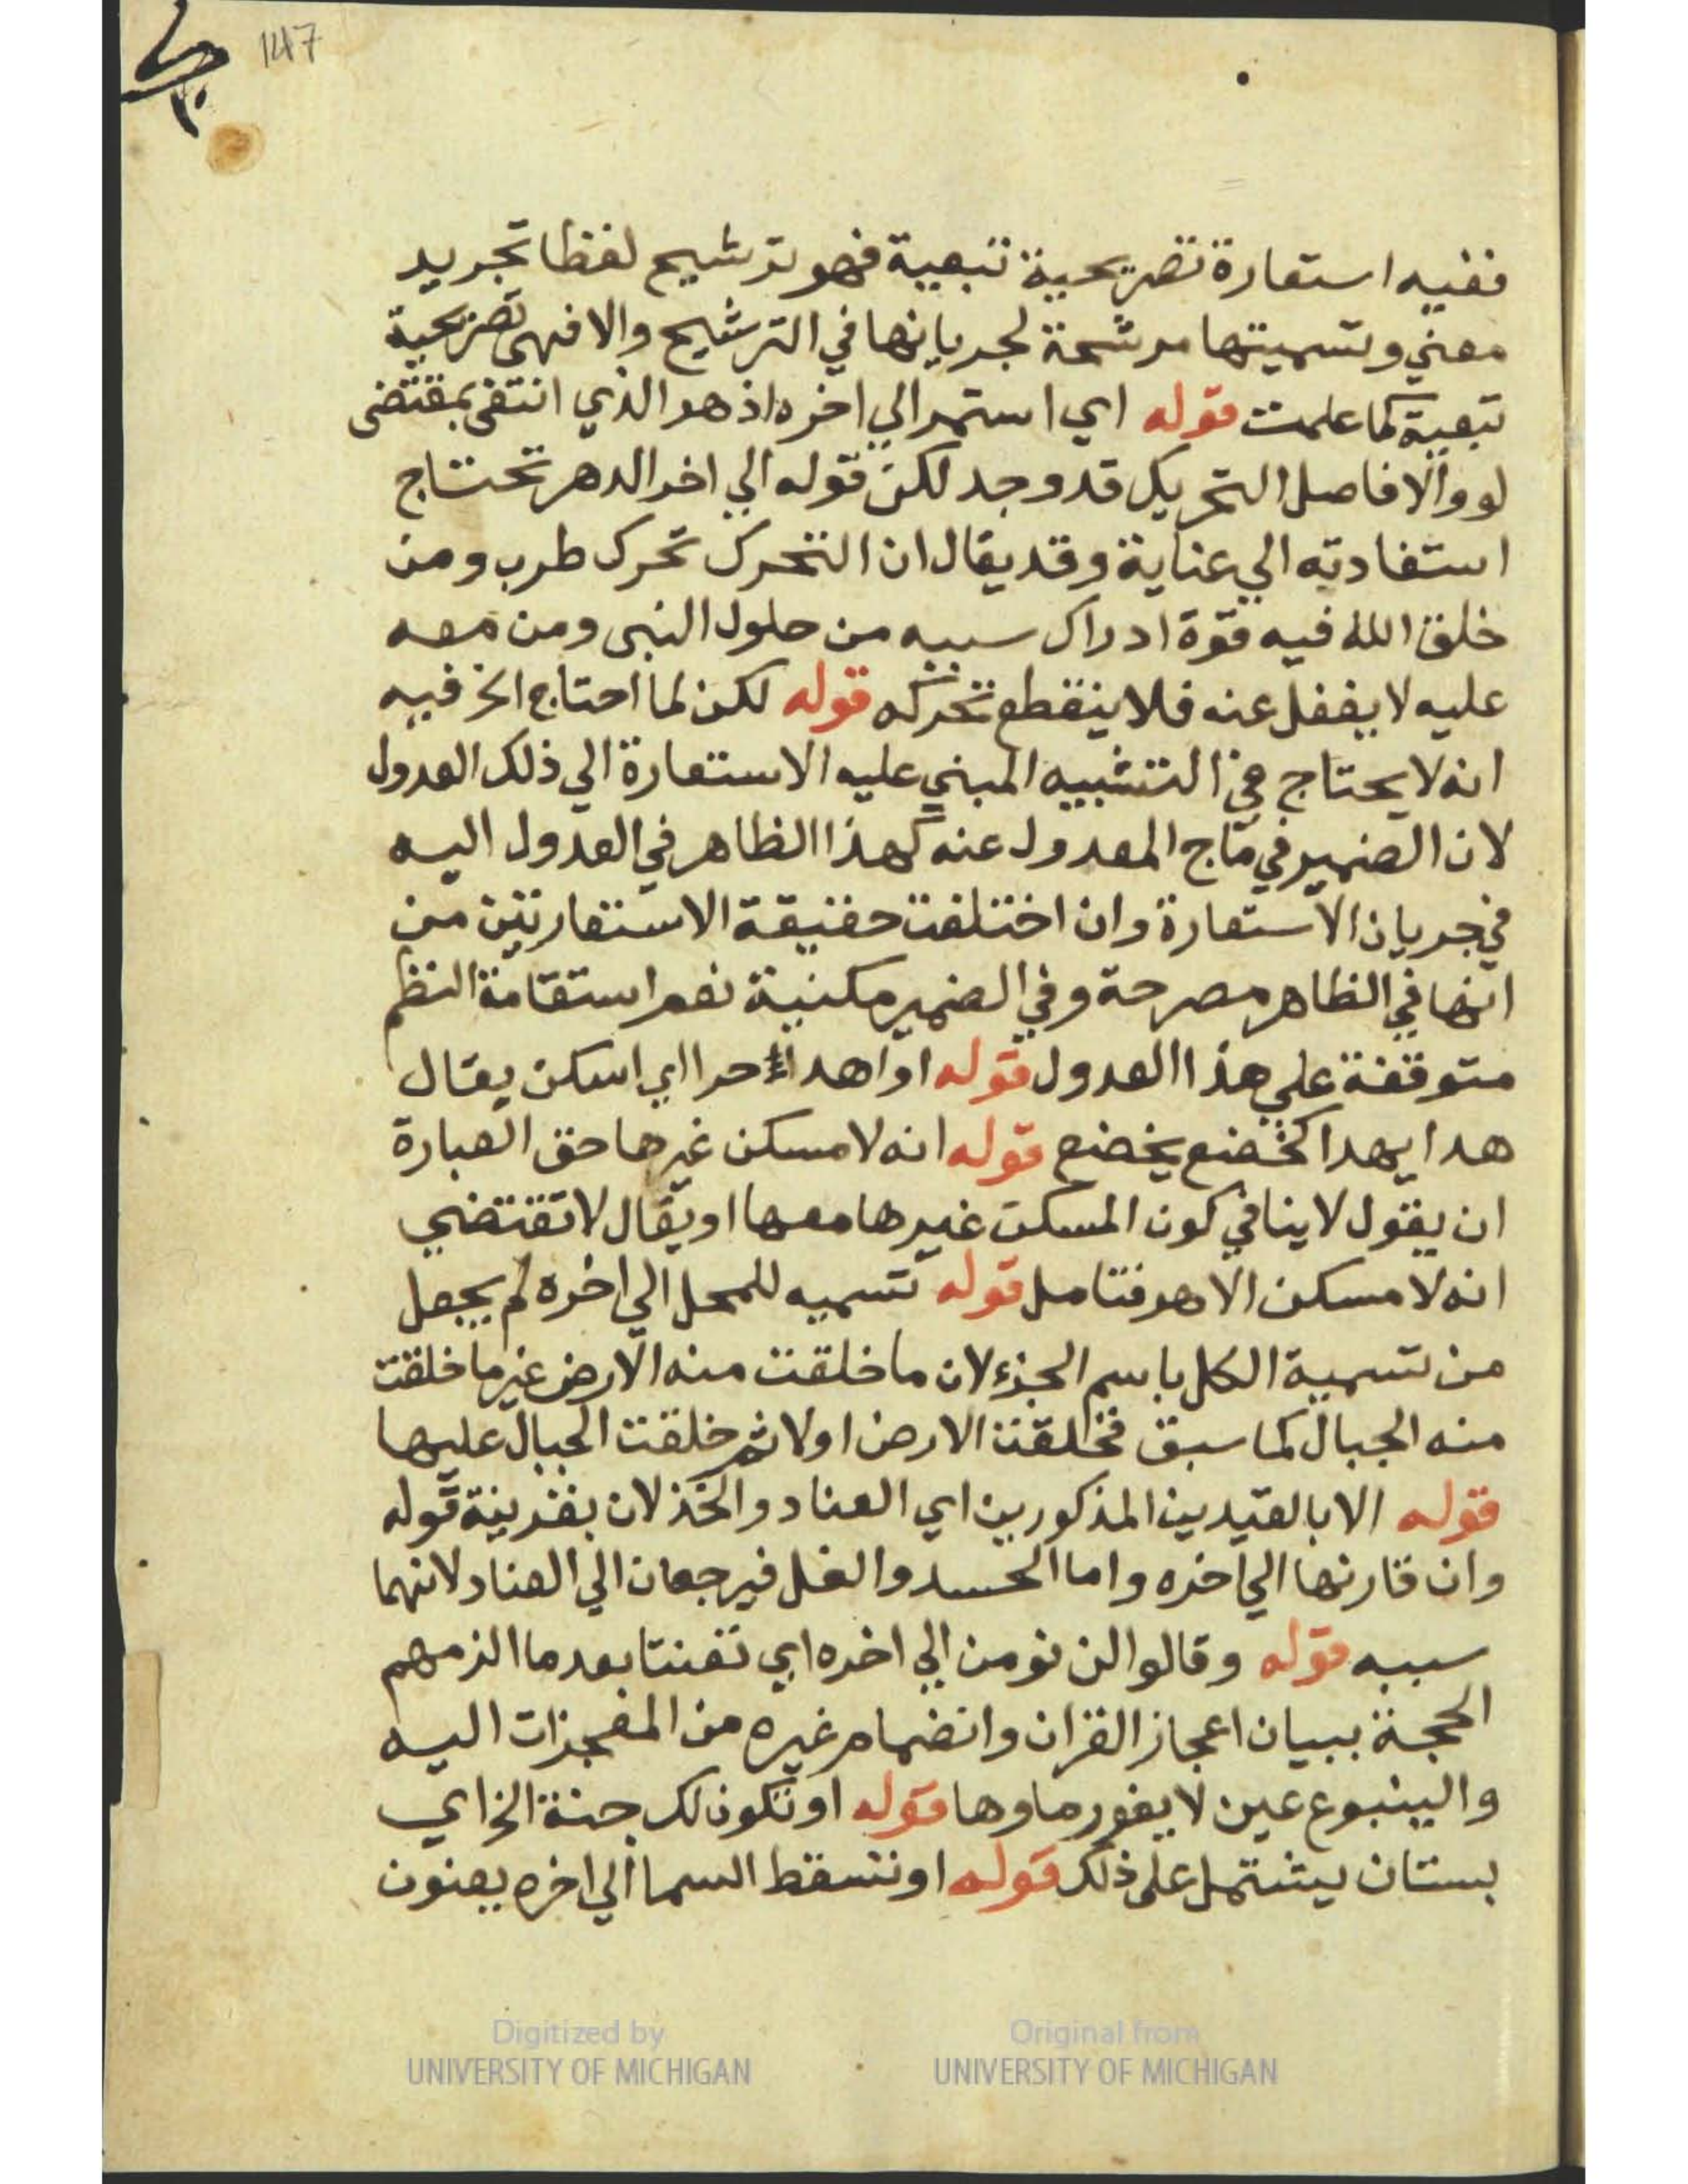 147
ففيه استعارة تصريحية تبعية فهو ترشيح لفظا تجريد
معني وتسميتها مرشحة لجريانها في الترشيح والا فهى تصريحية
تبعية كما علمت قوله اي استمر الي اخره اذ هو الذي انتفى بمقتضى
لو والا فاصل التحريك قد وجد لكن قوله الي اخر الدهر تحتاج
استفادته الي عناية وقد يقال ان التحرك تحرك طرب ومن
خلق الله فيه قوة ادراك سببه من حلول النبى ومن معه
عليه لا يغفل عنه فلا ينقطع تحركه قوله لكن لما احتاج الخ فيه
انه لا يحتاج في التشبيه المبني عليه الاستعارة الي ذلك العدول
لان الضمير في ماج المعدول عنه كهذا الظاهر في العدول اليه
في جريان الاستعارة وان اختلفت حقيقة الاستعارتين من
انها في الظاهر مصرحة وفي الضمير مكنية نعم استقامة النظم
متوقفة علي هذا العدول قوله او اهدا حرا اي اسكن يقال
هدا يهدا كخضع يخضع قوله انه لا مسكن غيرها حق العبارة
ان يقول لا ينافي كون المسكن غيرها معها او يقال لا تقتضي
انه لا مسكن الا هو فتامل قوله تسميه للمحل الي اخره لم يجعل
من تسمية الكل باسم الجزء لان ما خلقت منه الارض غير ما خلقت
منه الجبال كما سبق فخلقت الارض اولا ثم خلقت الجبال عليها
قوله الا بالقيدين المذكورين اي العناد والخذلان بقرينة قوله
وان قارنها الي اخره واما الحسد والغل فيرجعان الي العناد لانهما
سببه قوله وقالوا لن نومن الي اخره اي تعنتا بعد ما الزمهم
الحجة ببيان اعجاز القران وانضمام غيره من المعجزات اليه
والينبوع عين لا يغور ماوها قوله او تكون لك جنة الخ اي
بستان يشتمل على ذلك قوله او تسقط السما الي اخره يعنون
Digitized by
UNIVERSITY OF MICHIGAN
Original from
UNIVERSITY OF MICHIGAN